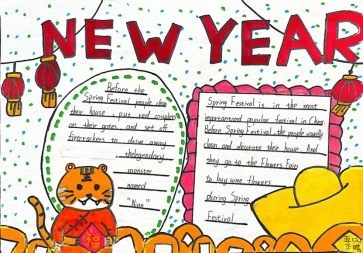 NEW YEAR
Before the
Spring Festival, people clean
their house, put red couplets
on their gates, and set off
firecrackers to drive away
thelegendary
monster
named
"Nian"
Spring Festival is in the most
importantand popular festival in China
Before Spring Festival, the people usually
clean and decorate their house. And
they go to the Flowers Fairs
to buy some flowers
during Spring
Festival
福